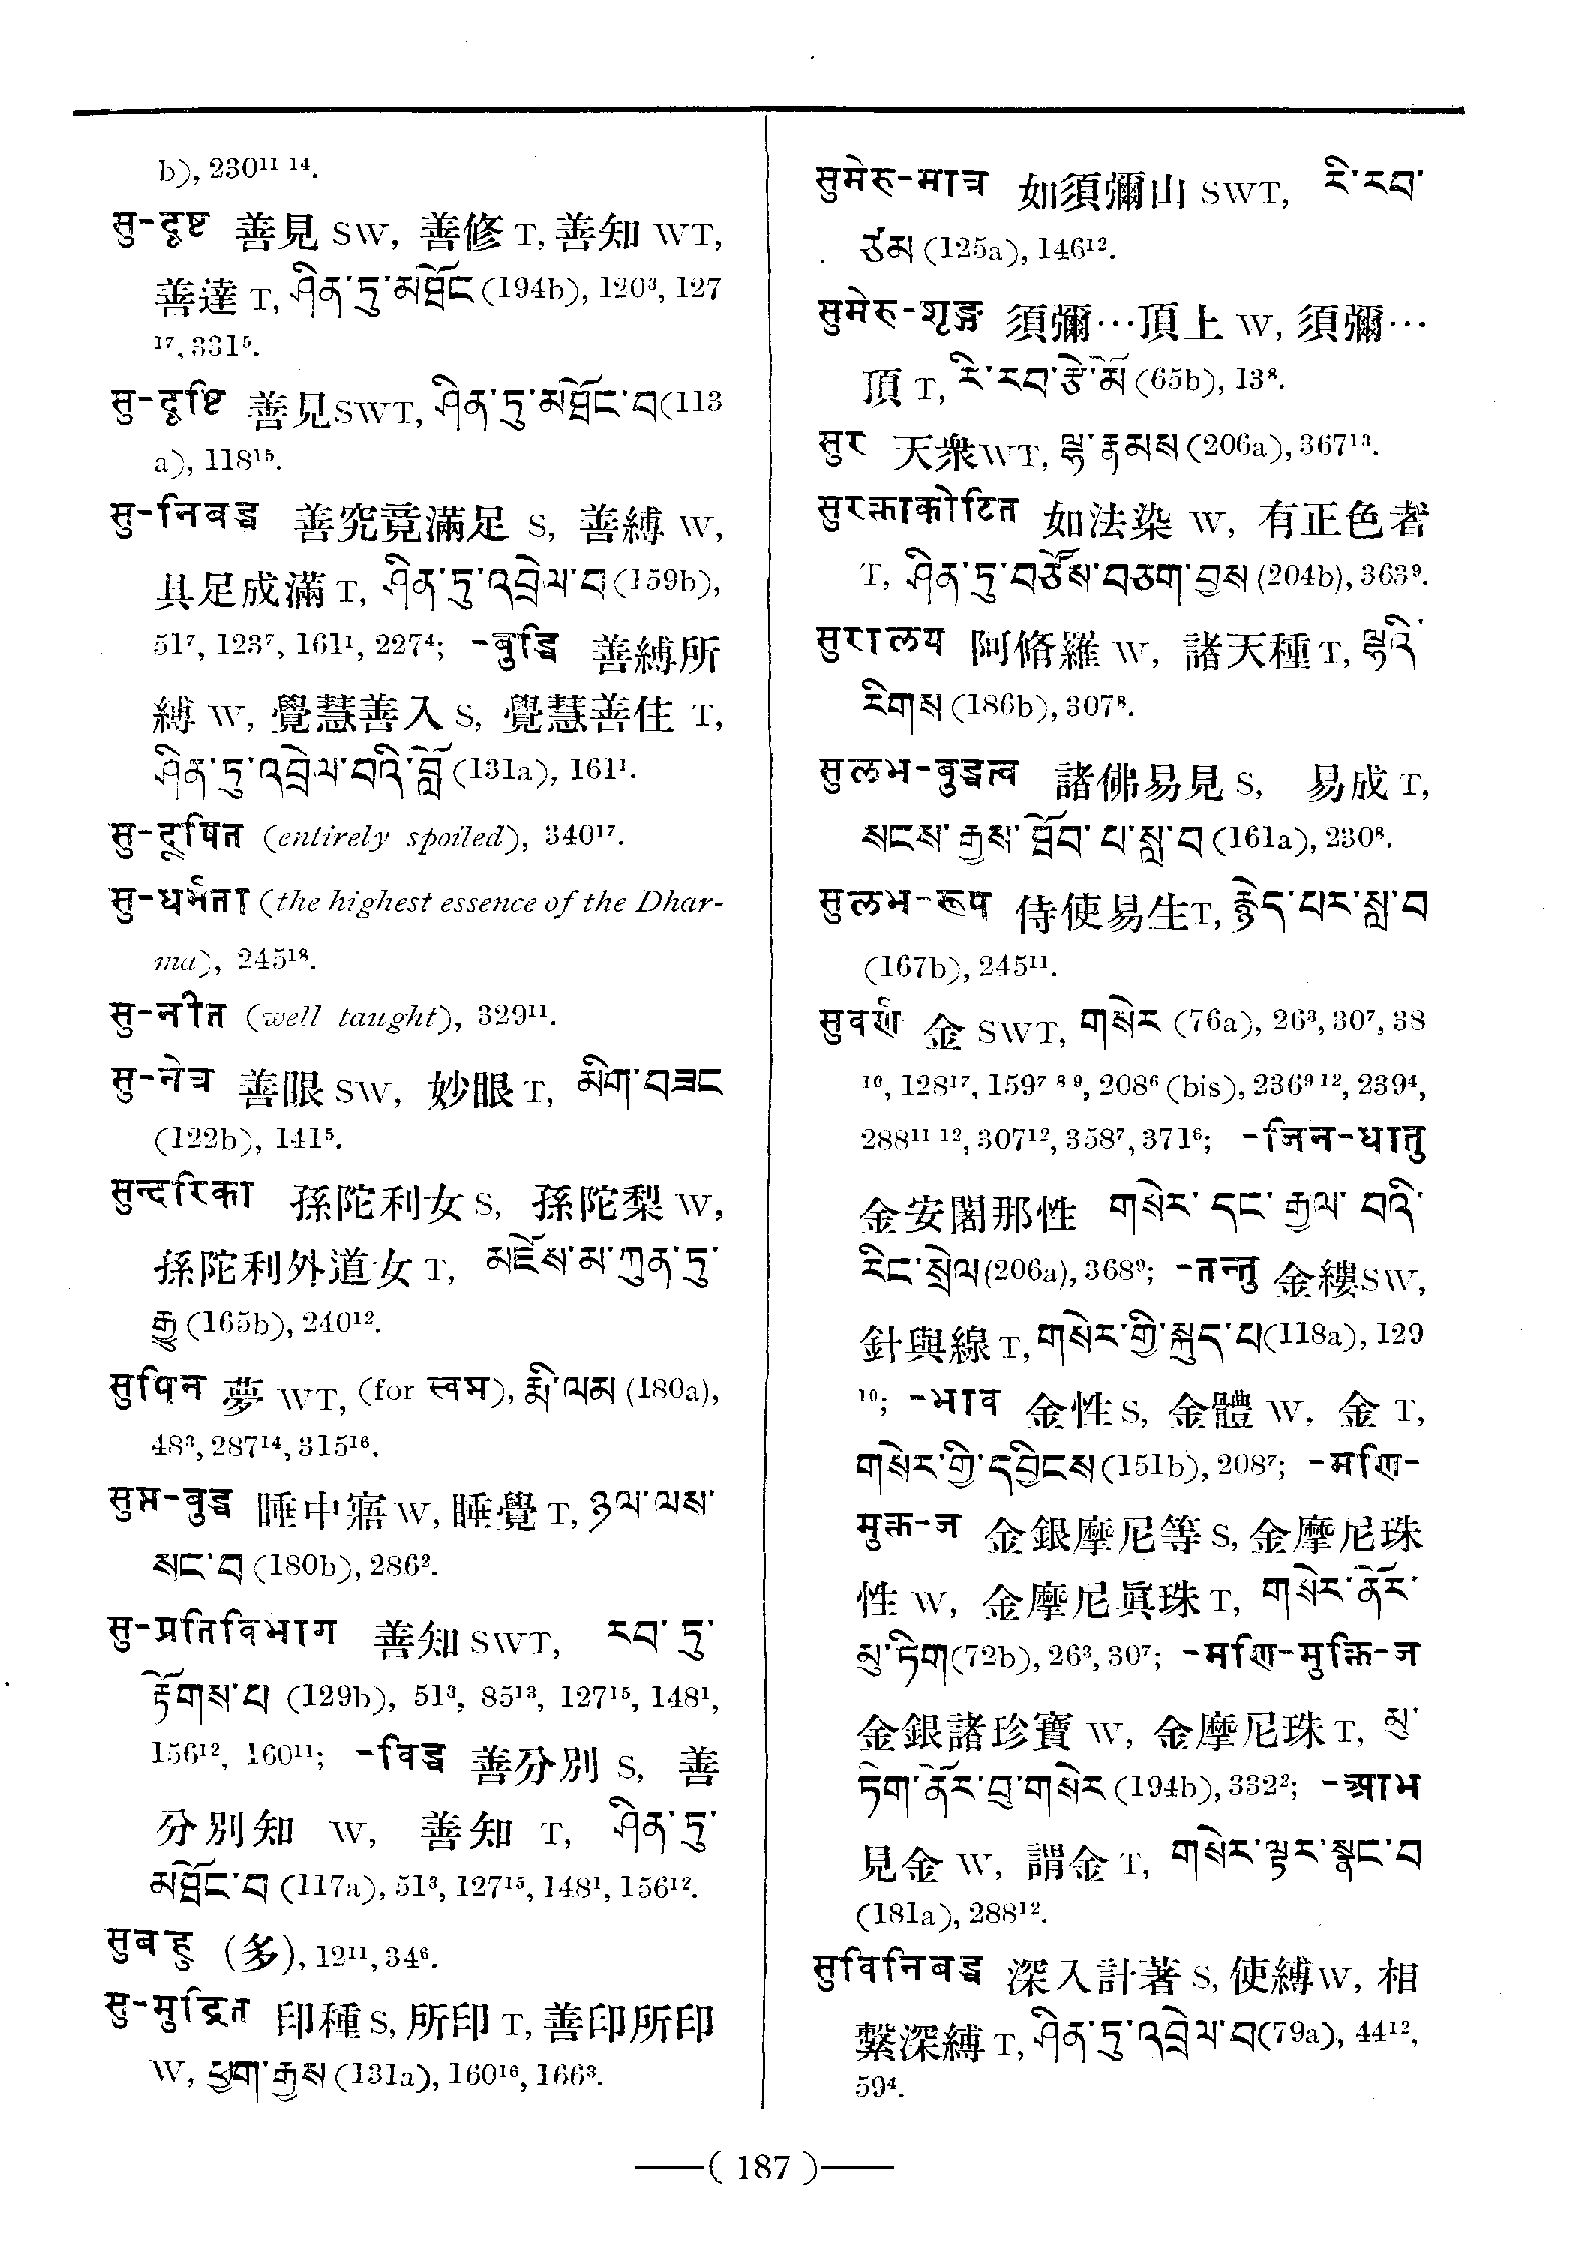 b), 230¹¹ ¹⁴.
सु-दृष्ट 善見 SW, 善修 T, 善知 WT,
善達 T, ཤིན་ཏུ་མཐོང (194b), 120³, 127
¹⁷, 331⁵.
सु-दृष्टि 善見SWT, ཤིན་ཏུ་མཐོང་བ(113
a), 118¹⁵.
सु-निबद्ध 善究竟滿足 S, 善縛 W,
具足成滿 T, ཤིན་ཏུ་འབྲེལ་བ(159b),
51⁷, 123⁷, 161¹, 227⁴; -बुद्धि 善縛所
縛 W, 覺慧善入 S, 覺慧善住 T,
ཤིན་ཏུ་འབྲེལ་བའི་བློ(131a), 161¹.
सु-दूषित (entirely spoiled), 340¹⁷.
सु-धर्मता (the highest essence of the Dhar-
ma), 245¹⁸.
सु-नीत (well taught), 329¹¹.
सु-नेत्र 善眼 SW, 妙眼 T, མིག་བཟང
(122b), 141⁵.
सुन्दरिका 孫陀利女 S, 孫陀梨 W,
孫陀利外道女 T, མཛེས་མ་ཀུན་ཏུ་
རྒྱུ (165b), 240¹².
सुपिन 夢 WT, (for स्वप्न), རྨི་ལམ (180a),
48³, 287¹⁴, 315¹⁶.
सुप्त-बुद्ध 睡中寤 W, 睡覺 T, ཉལ་ལས་
སང་བ (180b), 286².
सु-प्रतिविभाग 善知 SWT, རབ་ཏུ་
རྟོགས་པ (129b), 51³, 85¹³, 127¹⁵, 148¹,
156¹², 160¹¹; -विद्ध 善分別 S, 善
分別知 W, 善知 T, ཤིན་ཏུ་
མཐོང་བ (117a), 51³, 127¹⁵, 148¹, 156¹².
सुबहु (多), 12¹¹, 34⁶.
सु-मुद्रित 印種 S, 所印 T, 善印所印
W, ཕྱག་རྒྱས (131a), 160¹⁶, 166³.
सुमेरु-मात्र 如須彌山 SWT, རི་རབ་
ཙམ (125a), 146¹².
सुमेरु-शृङ्ग 須彌…頂上 W, 須彌…
頂 T, རི་རབ་རྩེ་མོ (65b), 13⁸.
सुर 天衆WT, ལྷ་རྣམས (206a), 367¹³.
सुरक्ताकोटित 如法染 W, 有正色者
T, ཤིན་ཏུ་བཙོས་བཅག་བྱས (204b), 363⁹.
सुरालय 阿脩羅 W, 諸天種 T, ལྷའི་
རིགས (186b), 307⁸.
सुलभ-बुद्धत्व 諸佛易見 S, 易成 T,
སངས་རྒྱས་ཐོབ་པ་སླ་བ (161a), 230⁸.
सुलभ-रूप 侍使易生T, རྙེད་པར་སླ་བ
(167b), 245¹¹.
सुवर्ण 金 SWT, གསེར (76a), 26³, 30⁷, 38
¹⁰, 128¹⁷, 159⁷ ⁸ ⁹, 208⁶ (bis), 236⁹ ¹², 239⁴,
288¹¹ ¹², 307¹², 358⁷, 371⁶; -जिन-धातु
金安闍那性 གསེར་དང་རྒྱལ་བའི་
རིང་སྲེལ(206a), 368⁹; -तन्तु 金縷SW,
針與線 T, གསེར་གྱི་སྐུད་པ(118a), 129
¹⁰; -भाव 金性 S, 金體 W, 金 T,
གསེར་གྱི་དབྱིངས(151b), 208⁷; -मणि-
मुक्त-ज 金銀摩尼等 S, 金摩尼珠
性 W, 金摩尼眞珠 T, གསེར་ནོར་
མུ་ཏིག(72b), 26³, 30⁷; -मणि-मुक्ति-ज
金銀諸珍寶 W, 金摩尼珠 T, མུ་
ཏིག་ནོར་བུ་གསེར (194b), 332²; -आभ
見金 W, 謂金 T, གསེར་ལྟར་སྣང་བ
(181a), 288¹².
सुविनिबद्ध 深入計著 S, 使縛W, 相
繫深縛 T, ཤིན་ཏུ་འབྲེལ་བ(79a), 44¹²,
59⁴.
( 187 )